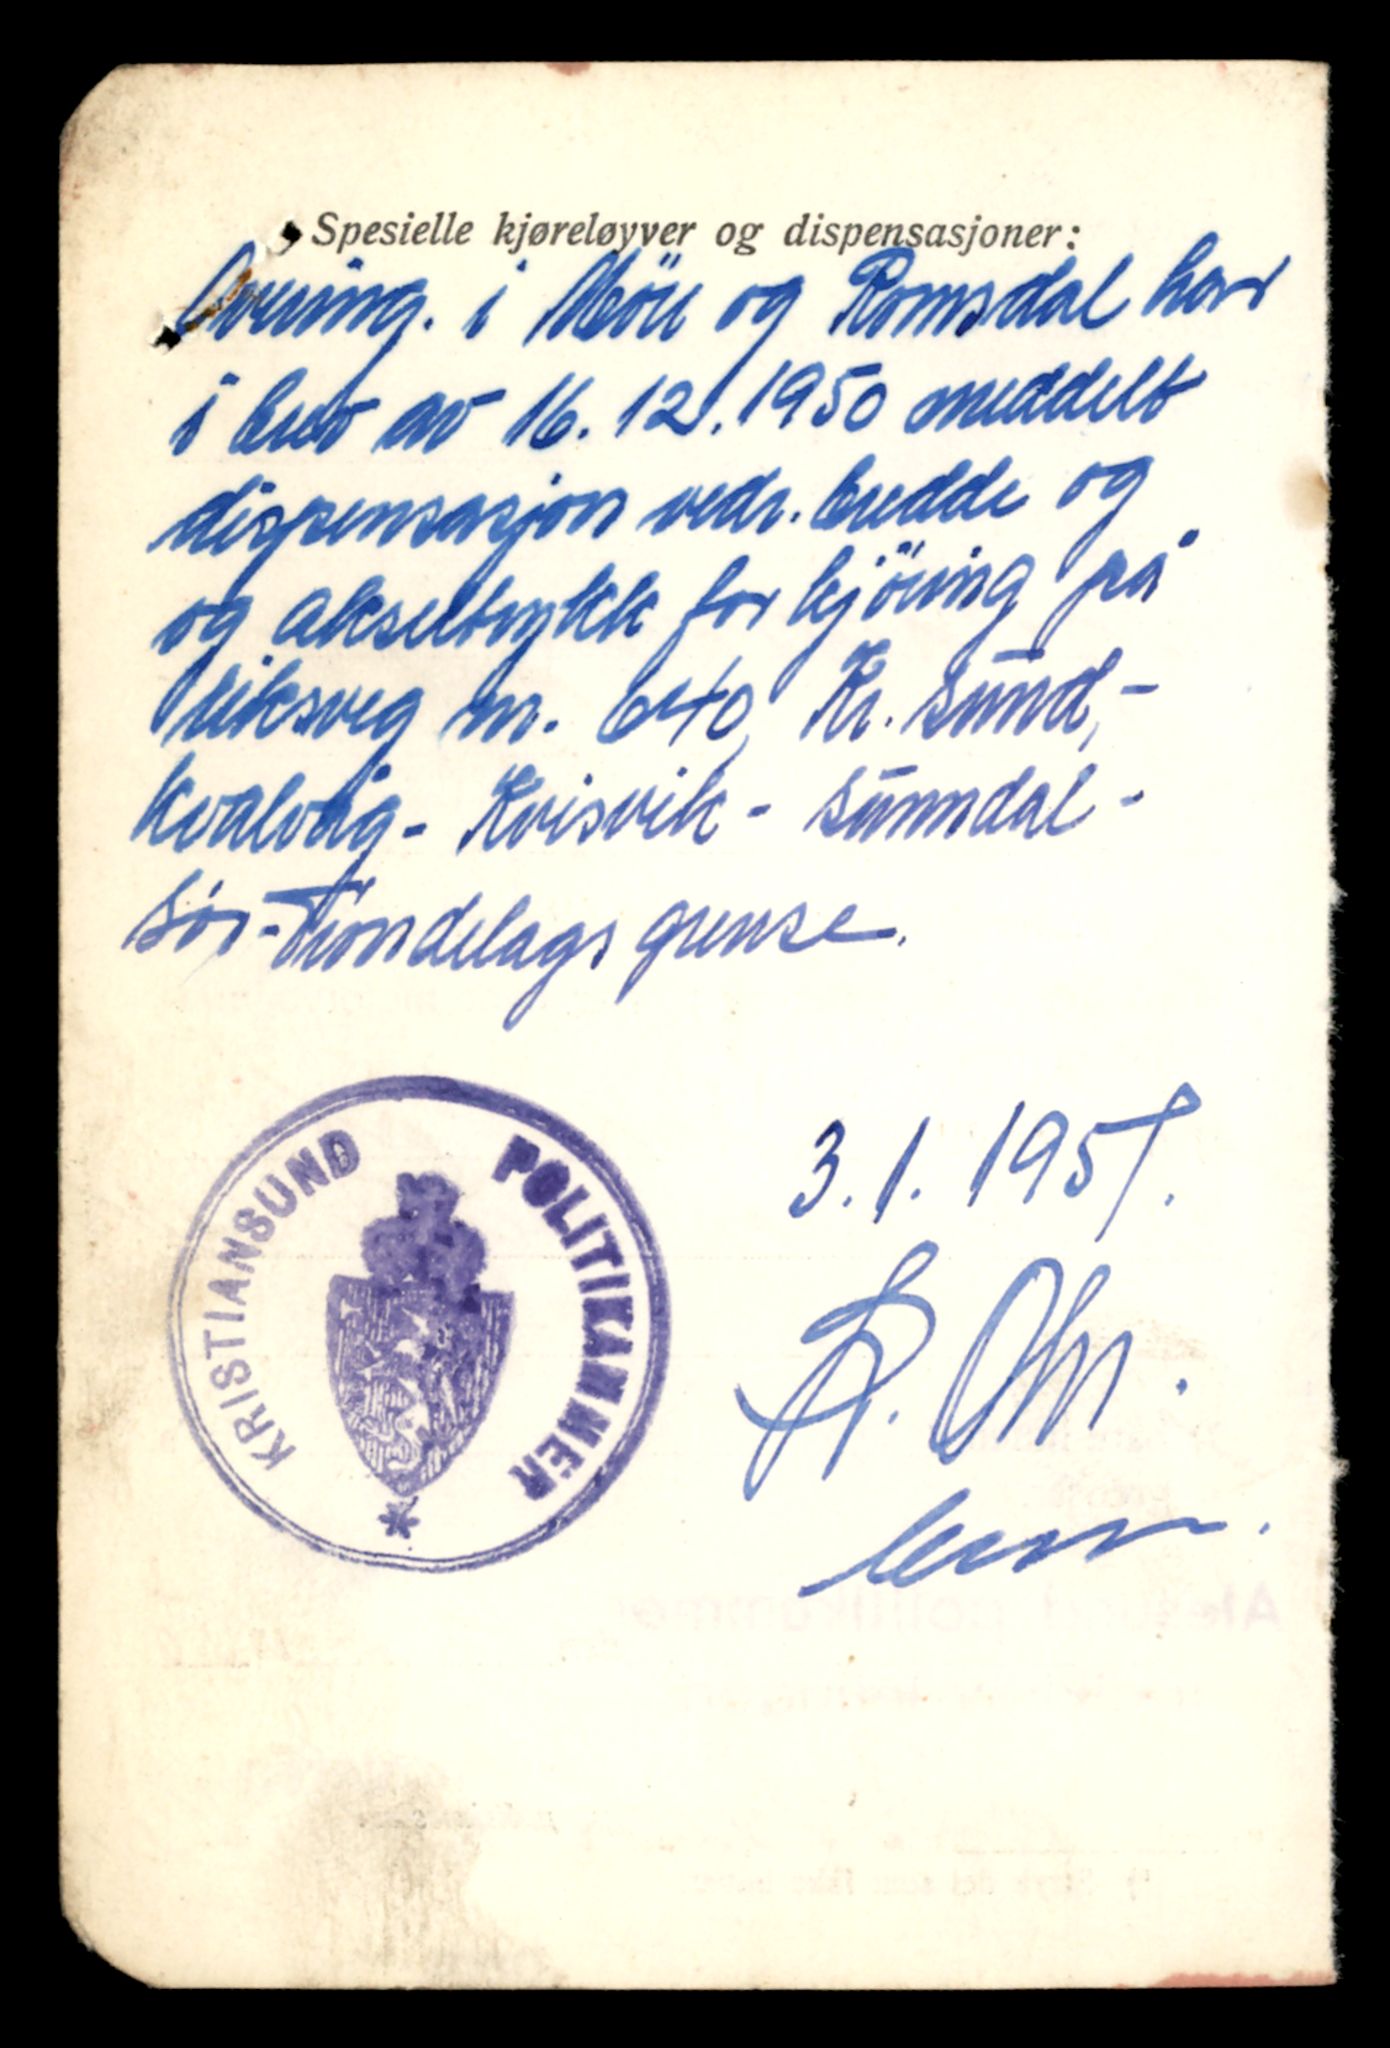 Spesielle kjøreløyver og dispensasjoner:
Overing. i Möre og Romsdal har
i brev av 16.12.1950 meddelt
dispensasjon vedr. bredde og
og akseltrykk for kjöring på
riksveg nr. 640, Kr.sund,-
Kvalvåg - Kvisvik - Sunndal -
Sör-Tröndelags grense.
3.1.1951.
KRISTIANSUND POLITIKAMMER